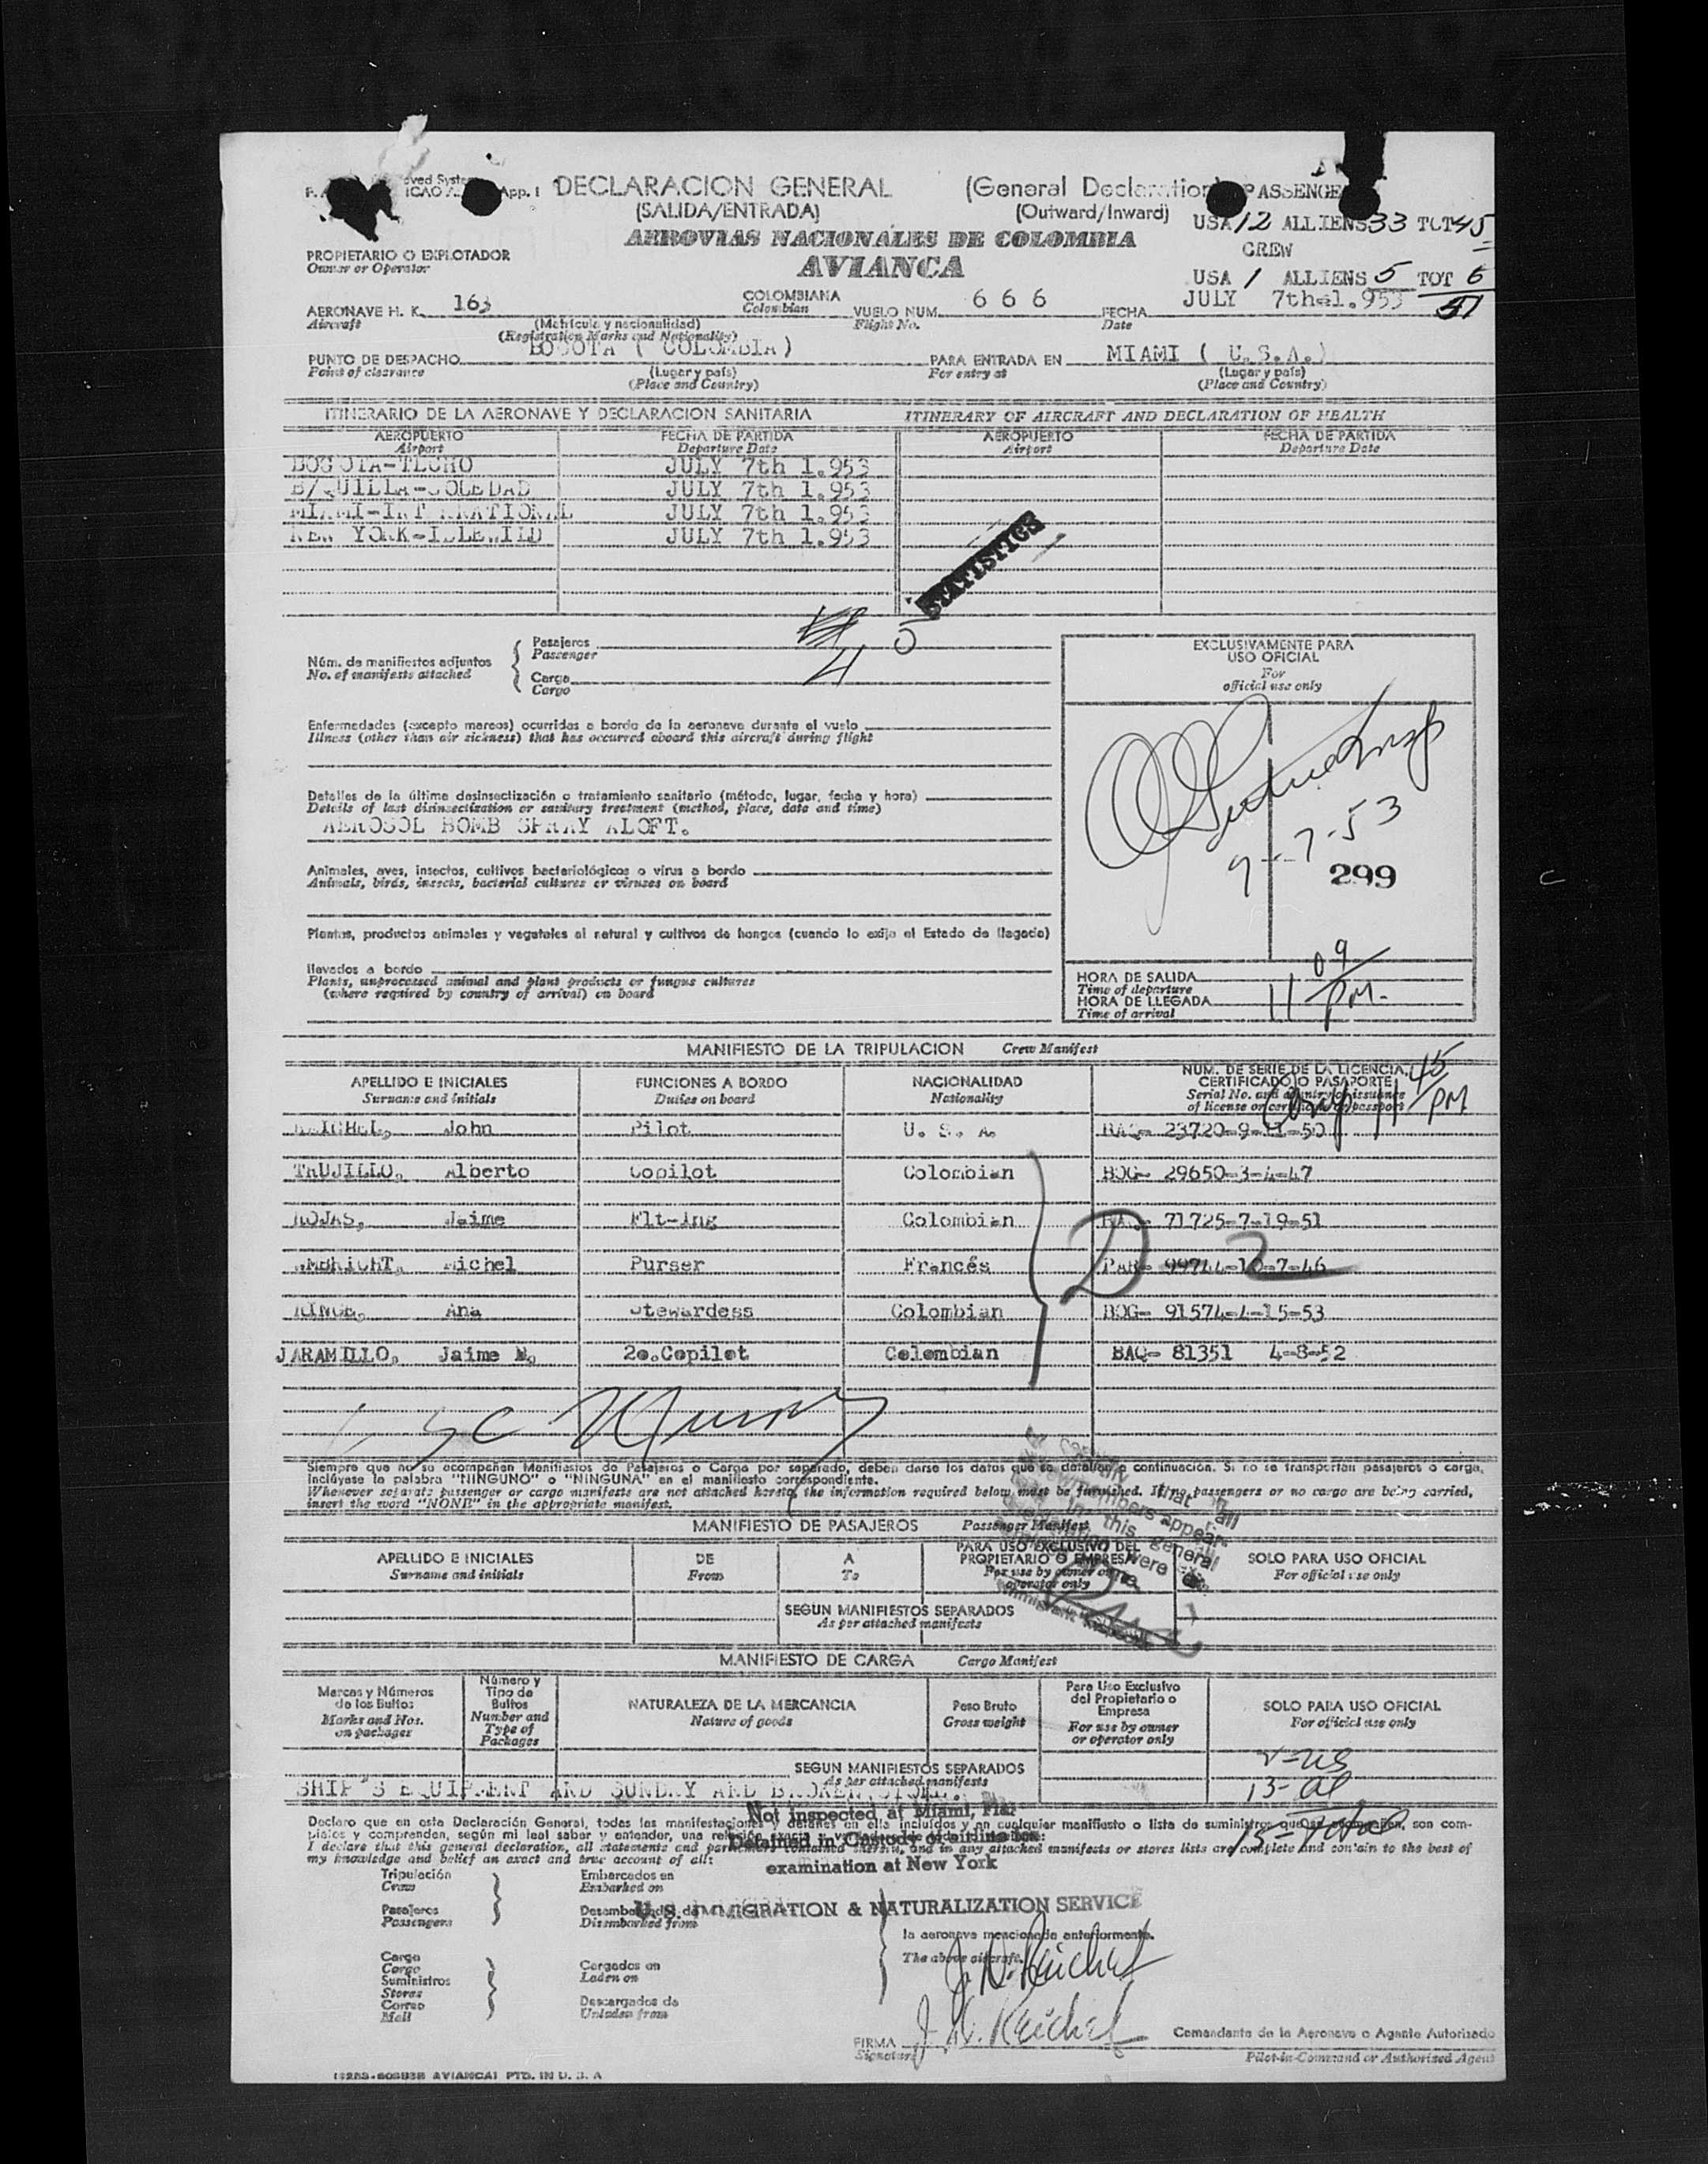 App. I DECLARACION GENERAL (General Declaration)
(SALIDA/ENTRADA) (Outward/Inward)
USA 12 ALLIENS 33 TOT 45
AEROVIAS NACIONALES DE COLOMBIA
CREW
AVIANCA
PROPIETARIO O EXPLOTADOR
Owner or Operator
USA 1 ALLIENS 5 TOT 6
51
AERONAVE H. K. 163 COLOMBIANA VUELO NUM. 666 FECHA JULY 7th 1.953
Aircraft Colombian Flight No. Date
(Matrícula y nacionalidad)
(Registration Marks and Nationality)
PUNTO DE DESPACHO BOGOTA ( COLOMBIA ) PARA ENTRADA EN MIAMI ( U.S.A.)
Point of clearance (Lugar y país) For entry at (Lugar y país)
(Place and Country) (Place and Country)
ITINERARIO DE LA AERONAVE Y DECLARACION SANITARIA ITINERARY OF AIRCRAFT AND DECLARATION OF HEALTH
AEROPUERTO FECHA DE PARTIDA AEROPUERTO FECHA DE PARTIDA
Airport Departure Date Airport Departure Date
BOGOTA-TECHO JULY 7th 1.953
B/QUILLA-SOLEDAD JULY 7th 1.953
MIAMI-INTERNATIONAL JULY 7th 1.953
NEW YORK-IDLEWILD JULY 7th 1.953
STATISTICS
Núm. de manifiestos adjuntos
No. of manifests attached
Pasajeros
Passenger
5
Carga
Cargo
4
EXCLUSIVAMENTE PARA
USO OFICIAL
For
official use only
7-7-53
299
Enfermedades (excepto mareos) ocurridas a bordo de la aeronave durante el vuelo
Illness (other than air sickness) that has occurred aboard this aircraft during flight
Detalles de la última desinsectización o tratamiento sanitario (método, lugar, fecha y hora)
Details of last disinsectization or sanitary treatment (method, place, date and time)
AEROSOL BOMB SPRAY ALOFT.
Animales, aves, insectos, cultivos bacteriológicos o virus a bordo
Animals, birds, insects, bacterial cultures or viruses on board
Plantas, productos animales y vegetales al natural y cultivos de hongos (cuando lo exija el Estado de llegada)
llevados a bordo
Plants, unprocessed animal and plant products or fungus cultures
(where required by country of arrival) on board
HORA DE SALIDA
Time of departure
HORA DE LLEGADA
Time of arrival
11 09 PM.
MANIFIESTO DE LA TRIPULACION Crew Manifest
APELLIDO E INICIALES FUNCIONES A BORDO NACIONALIDAD NUM. DE SERIE DE LA LICENCIA,
CERTIFICADO O PASAPORTE
Surname and initials Duties on board Nationality Serial No. and country of issuance
of license or certificate or passport
45 PM
REICHEL, John Pilot U. S. A. BAQ- 23720-9-11-50
TRUJILLO, Alberto Copilot Colombian BOG- 29650-3-4-47
ROJAS, Jaime Flt-Ing Colombian BAQ- 71725-7-19-51
Michel Purser Francés PAR- 99744-10-7-46
Ana Stewardess Colombian BOG- 91574-4-15-53
JARAMILLO, Jaime M. 2o.Copilot Colombian BAQ- 81351 4-8-52
Siempre que no se acompañen Manifiestos de Pasajeros o Carga por separado, deben darse los datos que se detallan a continuación. Si no se transportan pasajeros o carga,
inclúyase la palabra "NINGUNO" o "NINGUNA" en el manifiesto correspondiente.
Whenever separate passenger or cargo manifests are not attached hereto, the information required below must be furnished. If no passengers or no cargo are being carried,
insert the word "NONE" in the appropriate manifest.
MANIFIESTO DE PASAJEROS Passenger Manifest
APELLIDO E INICIALES DE A PARA USO EXCLUSIVO DEL PROPIETARIO O EMPRESA SOLO PARA USO OFICIAL
Surname and initials From To For use by owner or operator only For official use only
SEGUN MANIFIESTOS SEPARADOS
As per attached manifests
MANIFIESTO DE CARGA Cargo Manifest
Marcas y Números
de los Bultos
Marks and Nos.
on packages
Número y
Tipo de
Bultos
Number and
Type of
Packages
NATURALEZA DE LA MERCANCIA
Nature of goods
Peso Bruto
Gross weight
Para Uso Exclusivo
del Propietario o
Empresa
For use by owner
or operator only
SOLO PARA USO OFICIAL
For official use only
SEGUN MANIFIESTOS SEPARADOS
As per attached manifests
2-us
13-al
15-Total
SHIP'S EQUIPMENT AND SUNDRY AND
Not inspected at Miami, Fla.
Detained in Custody of airline for
examination at New York
U. S. IMMIGRATION & NATURALIZATION SERVICE
Declaro que en esta Declaración General, todas las manifestaciones y detalles en ella incluídos y en cualquier manifiesto o lista de suministros que se acompañan, son com-
pletos y comprenden, según mi leal saber y entender, una relación exacta y
I declare that this general declaration, all statements and particulars contained therein, and in any attached manifests or stores lists are complete and contain to the best of
my knowledge and belief an exact and true account of all:
Tripulación
Crew
Embarcados en
Embarked on
Pasajeros
Passengers
Desembarcados de
Disembarked from
la aeronave mencionada anteriormente.
The above aircraft.
Carga
Cargo
Suministros
Stores
Correo
Mail
Cargados en
Laden on
Descargados de
Unladen from
J. N. Reichel
FIRMA J. N. Reichel Comandante de la Aeronave o Agente Autorizado
Signature Pilot-in-Command or Authorized Agent
AVIANCA) PTD. IN U. S. A